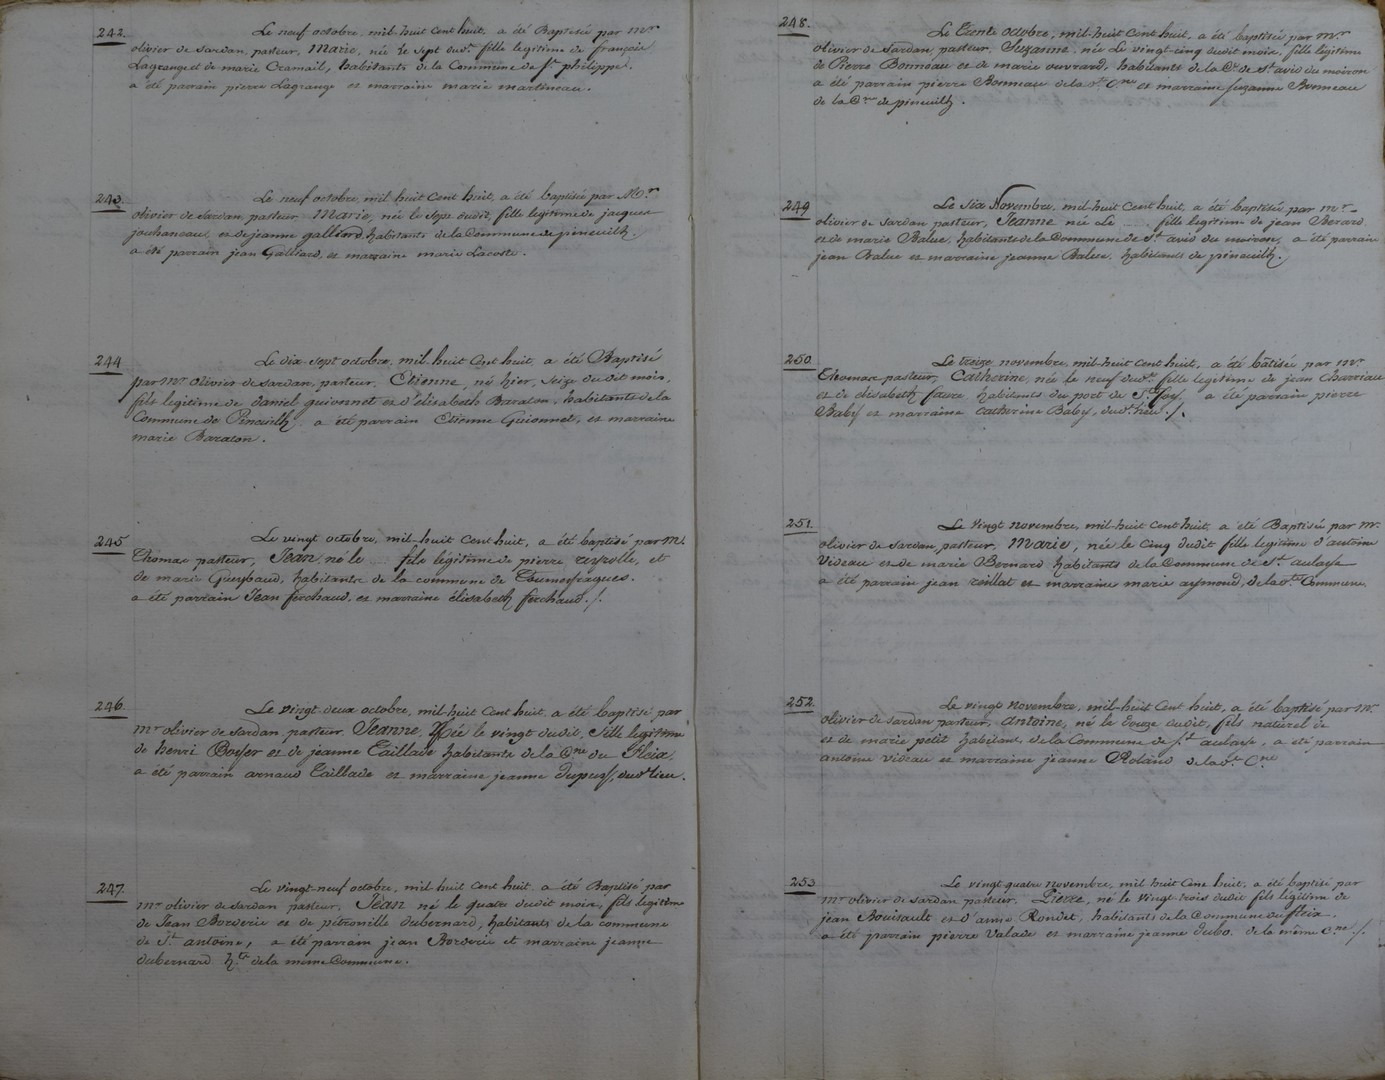 242. Le neuf octobre, mil-huit cent huit, a été Baptisée par mr
olivier de Sardan, pasteur, Marie, née le sept dudt. fille legitime de françois
Lagrange et de marie Cramail, habitants de la Commune de St. philippe.
a été parrain pierre Lagrange et marraine marie martineau.
243. Le neuf octobre, mil huit Cent huit, a été baptisée par Mr.
olivier de Sardan, pasteur, Marie, née le Sept dudit, fille legitime de jacques
jouhaneau, et de jeanne galliard, habitants de la Commune de pineuilh.
a été parrain jean Galliard, et marraine marie Lacoste.
244 Le dix-sept octobre, mil-huit Cent huit, a été Baptisé
par mr olivier de Sardan, pasteur, Etienne, né hier, Seize dudit mois,
fils legitime de daniel guionnet et d'élisabeth Baraton, habitants de la
Commune de Pineuilh, a été parrain Etienne Guionnet, et marraine
marie Baraton.
245 Le vingt octobre, mil-huit Cent huit, a été baptisé par Mr
Thomac pasteur, Jean, né le .... fils légitime de pierre reyrolle, et
de marie Gueybaud, habitants de la commune de Toumeyragues.
a été parrain Jean ferchaud, et marraine élisabeth ferchaud ./.
246. Le vingt-deux octobre, mil-huit Cent huit, a été baptisé par
mr olivier de Sardan, pasteur, Jeanne, Née le vingt dudit, fille legitime
de henri Boyer et de jeanne Taillade habitants de la Cne du Fleix.
a été parrain arnaud Taillade et marraine jeanne dupuy, dudt. lieu.
247. Le vingt-neuf octobre, mil-huit Cent huit, a été Baptisé par
mr olivier de Sardan pasteur, Jean né le quatre dudit mois, fils legitime
de Jean Borderie et de pétronille dubernard, habitants de la commune
de St. antoine, a été parrain jean Borderie et marraine jeanne
dubernard hts de la meme Commune.
248. Le Trente octobre, mil-huit Cent huit, a été baptisée par mr.
olivier de Sardan, pasteur, Suzanne, née le vingt-cinq dudit mois, fille legitime
de Pierre Bonneau et de marie euvrard, habitants de la Cne de St. avid du moiron
a été parrain pierre Bonneau de la dt. Cne et marraine Suzanne Bonneau
de la Cne de pineuilh.
249 Le Six Novembre, mil-huit Cent huit, a été baptisée par mr.
olivier de Sardan pasteur, Jeanne née Le .... fille legitime de jean Berard
et de marie Balue, habitants de la Commune de St. avid du moiron, a été parrain
jean Balue et marraine jeanne Balue, habitants de pineuilh.
250. Le treize novembre, mil-huit cent huit, a été bâtisée par mr
Thomac pasteur, Catherine, née le neuf dudt. fille legitime de jean Charriau
et de élisabeth faure habitants du port de Ste foy, a été parrain pierre
Baby et marraine catherine Baby, dudt. lieu ./.
251. Le vingt novembre, mil-huit Cent huit, a été Baptisée par mr.
olivier de Sardan, pasteur, Marie, née le Cinq dudit fille legitime d'antoine
Videau et de marie Bernard habitants de la Commune de St. aulaye
a été parrain jean reillat et marraine marie aymond, de la dte Commune.
252. Le vingt novembre, mil-huit Cent huit, a été baptisé par Mr.
olivier de Sardan, pasteur, Antoine, né le douze dudit, fils naturel de
et de marie petit habitant de la Commune de St. aulaye, a été parrain
antoine videau et marraine jeanne Roland de la dt. Cne
253 Le vingt quatre novembre, mil huit Cent huit, a été baptisé par
mr olivier de Sardan pasteur, Pierre, né le vingt trois dudit fils legitime de
jean Bouisault et d'anne Rondet, habitants de la Commune du fleix.
a été parrain pierre Valade et marraine jeanne dubo. de la même Cne ./.